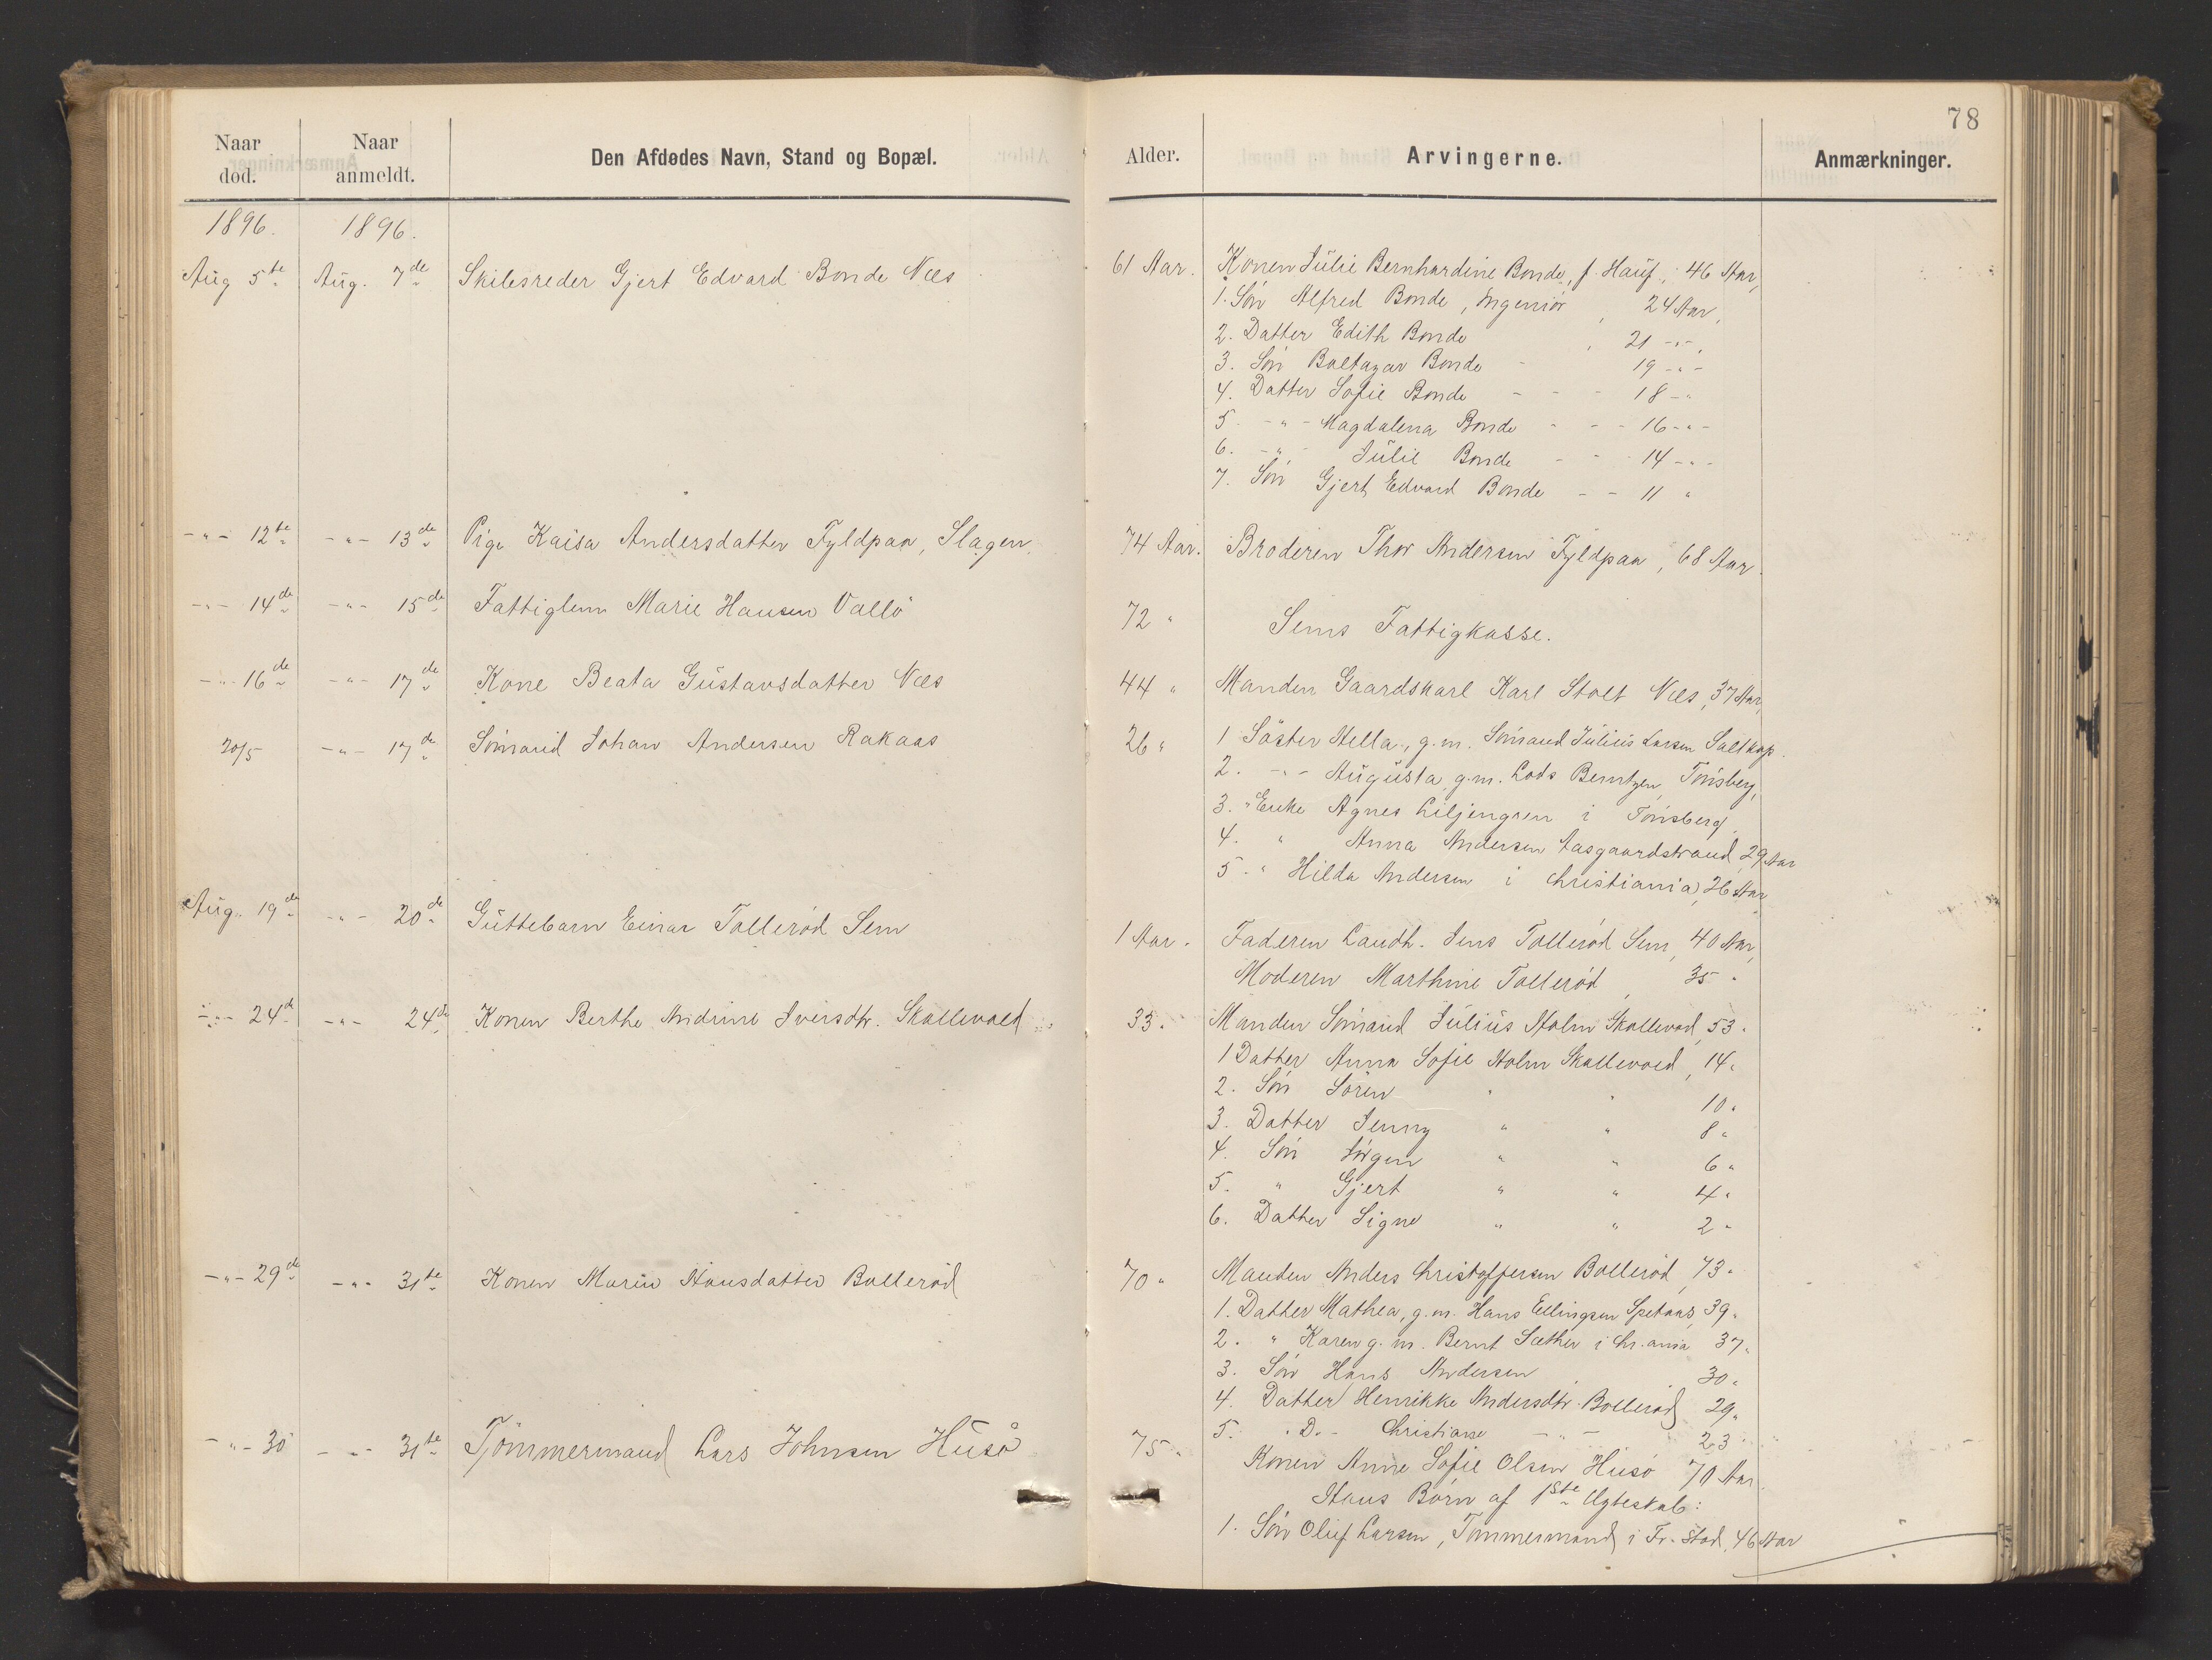 78
Naar død.
Naar anmeldt.
Den Afdødes Navn, Stand og Bopæl.
Alder.
Arvingerne.
Anmærkninger.
1896. 1896.
Aug 5te Aug. 7de Skibsreder Gjert Edvard Bonde Næs 61 Aar. Konen Julie Bernhardine Bonde, f. Hauf, 46 Aar,
1. Søn Alfred Bonde, Ingeniør, 24 Aar,
2. Datter Edith Bonde, 21 -"-,
3. Søn Baltazar Bonde - 19 -"-
4. Datter Sofie Bonde - - - 18 -"
5. -"- Magdalena Bonde - - - 16 -"-
6. -"- Julie Bonde - - - 14 -"-
7. Søn Gjert Edvard Bonde - - 11 "
-"- 12te -"- 13de Pige Kaisa Andersdatter Fyldpaa, Slagen. 74 Aar. Broderen Thor Andersen Fyldpaa, 68 Aar.
-"- 14de -"- 15de Fattiglem Marie Hansen Vallö 72 " Sems Fattigkasse.
-"- 16de -"- 17de Kone Beata Gustavsdatter Næs 44 " Manden Gaardskarl Karl Stolt Næs, 37 Aar,
20/5 -"- 17de Sømand Johan Andersen Rakaas 26 " 1 Söster Hella, g.m. Sømand Julius Larsen Saltkop.
2. -"- Augusta g.m. Lods Berntzen, Tönsberg,
3. " Enke Agnes Liljengren i Tönsberg,
4. " Anna Andersen Aasgaardstrand, 29 Aar
5. " Hilda Andersen i Christiania, 26 Aar
Aug. 19de -"- 20de Guttebarn Einar Tollerød Sem 1 Aar. Faderen Landh. Jens Tollerød Sem, 40 Aar,
Moderen Marthine Tollerød, 35 "
-"- 24de -"- 24de Konen Berthe Andrine Iversdtr. Skallevold 33 " Manden Sømand Julius Holm Skallevold, 53 "
1 Datter Anna Sofie Holm Skallevold, 14 "
2. Søn Søren " " 10 "
3. Datter Jenny " " 8 "
4. Søn Jørgen " " 6 "
5. " Gjert " " 4 "
6. Datter Signe " " 2 "
-"- 29de -"- 31te Konen Maren Hansdatter Bollerød 70 " Manden Anders Christoffersen Bollerød, 73 "
1. Datter Mathea, g.m. Hans Ellingsen Spetaas, 39 "
2. " Karen g.m. Bernt Sæther i Chr.ania 37 "
3. Søn Hans Andersen, 30 "
4. Datter Henrikke Andersdtr. Bollerød 29 "
5. - D. - Christiane -"- 23 "
-"- 30 -"- 31te Tømmermand Lars Johnsen Husø 75 " Konen Anne Sofie Olsen Husø 70 Aar.
Hans Børn af 1ste Ægteskab:
1. Søn Oluf Larsen, Tømmermand i Fr.stad, 46 Aar